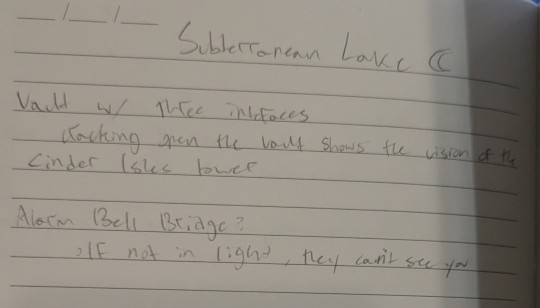 __/__/__
Subterranean Lake CC
Vault w/ three interfaces
Cracking open the vault shows the vision of the
Cinder Isles tower
Alarm Bell Bridge?
If not in light, they can't see you